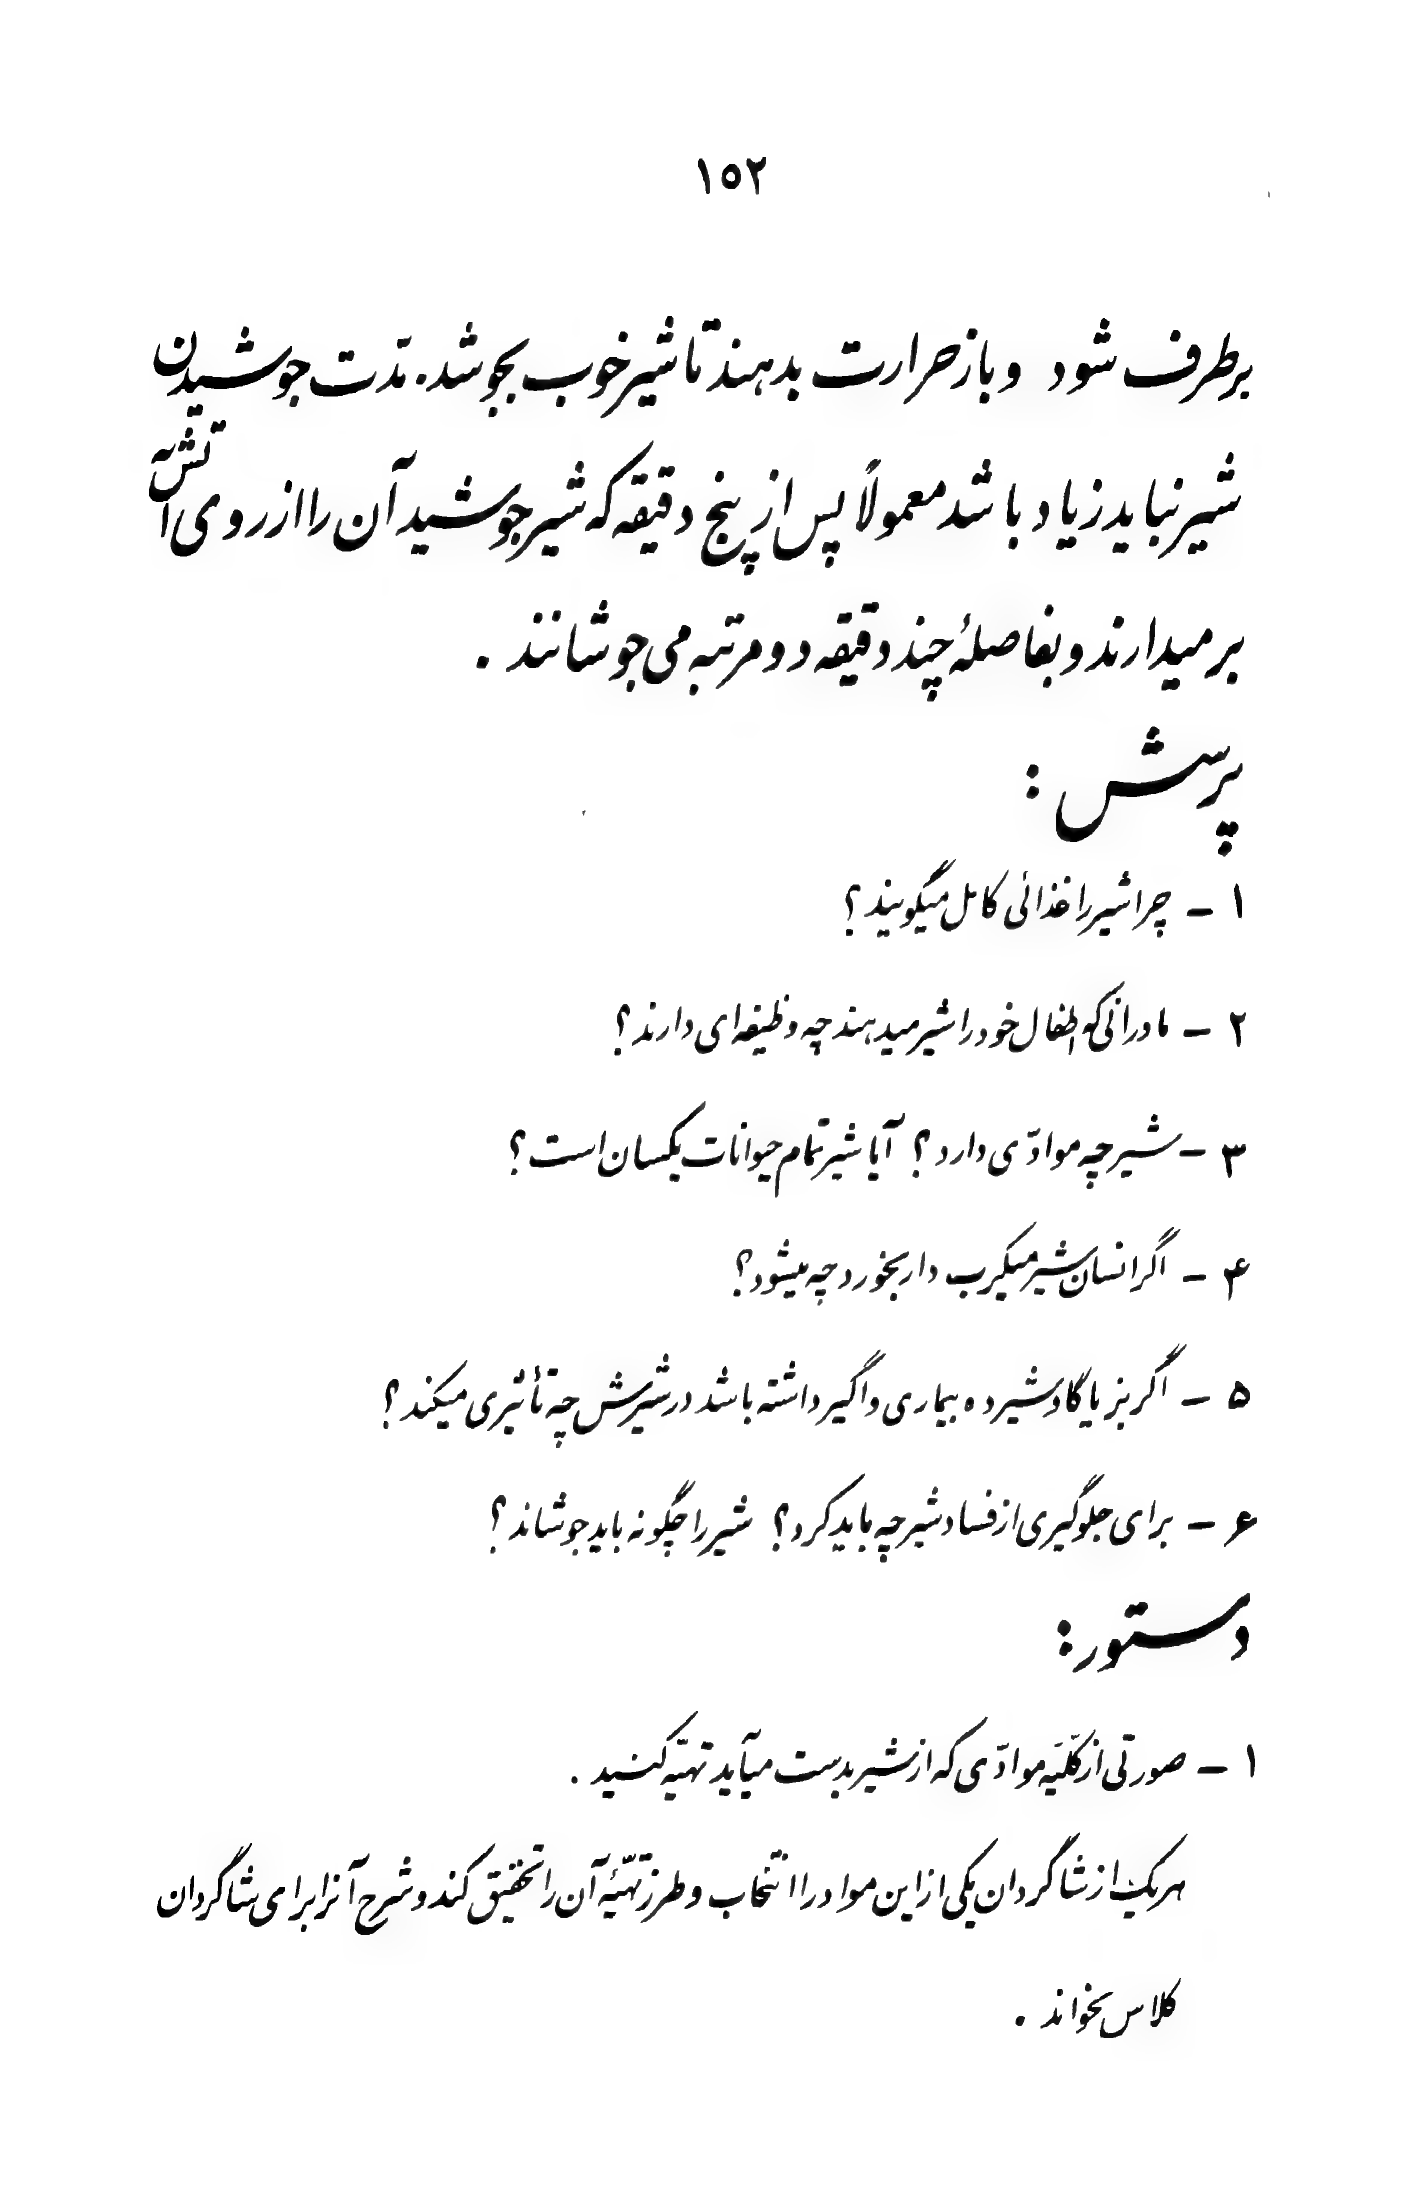 ۱۵۲
برطرف شود و باز حرارت بدهند تا شیر خوب بجوشد. مدّت جوشیدن
شیر نباید زیاد باشد معمولاً پس از پنج دقیقه که شیر جوشید آن را از روی آتش
برمیدارند و بفاصلهٔ چند دقیقه دو مرتبه می جوشانند .
پرسش :
۱ - چرا شیر را غذائی کامل میگویند ؟
۲ - مادرانی که اطفال خود را شیر میدهند چه وظیفه ای دارند ؟
۳ - شیر چه موادّی دارد ؟ آیا شیر تمام حیوانات یکسان است ؟
۴ - اگر انسان شیر میکرب دار بخورد چه میشود ؟
۵ - اگر بز یا گاو شیرده بیماری واگیر داشته باشد در شیرش چه تأثیری میکند ؟
۶ - برای جلوگیری از فساد شیر چه باید کرد ؟ شیر را چگونه باید جوشاند ؟
دستور :
۱ - صورتی از کلّیّه موادّی که از شیر بدست میآید تهیّه کنید .
هر یک از شاگردان یکی از این مواد را انتخاب و طرز تهیّهٔ آن را تحقیق کند و شرح آنرا برای شاگردان
کلاس بخواند .